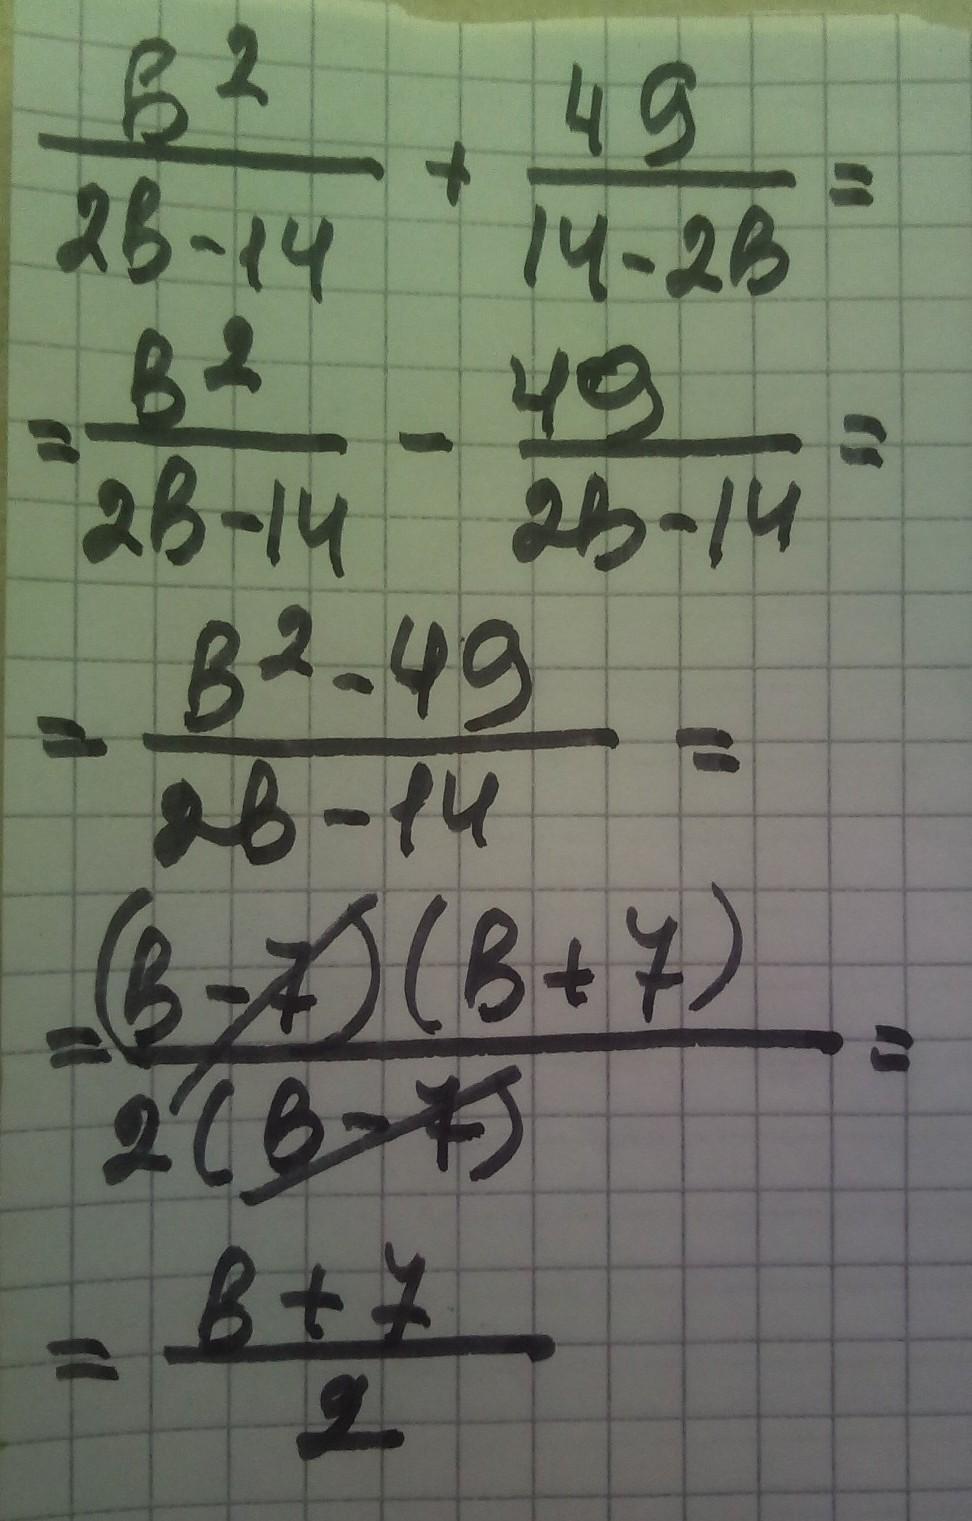 B² / 2B-14 + 49 / 14-2B =
= B² / 2B-14 - 49 / 2B-14 =
= B²-49 / 2B-14 =
= (B-7)(B+7) / 2(B-7) =
= B+7 / 2